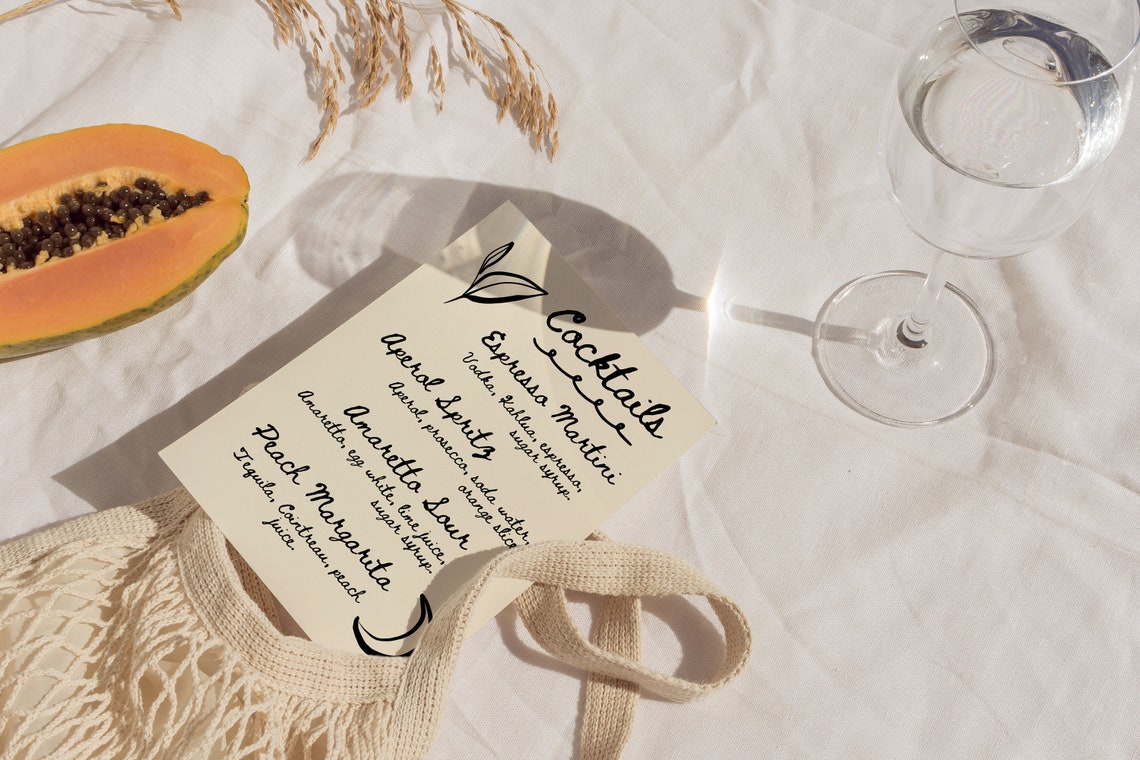 Cocktails
Espresso Martini
Vodka, Kahlua, espresso,
sugar syrup.
Aperol Spritz
Aperol, prosecco, soda water,
orange slice
Amaretto Sour
Amaretto, egg white, lime juice,
sugar syrup.
Peach Margarita
Tequila, Cointreau, peach
juice.